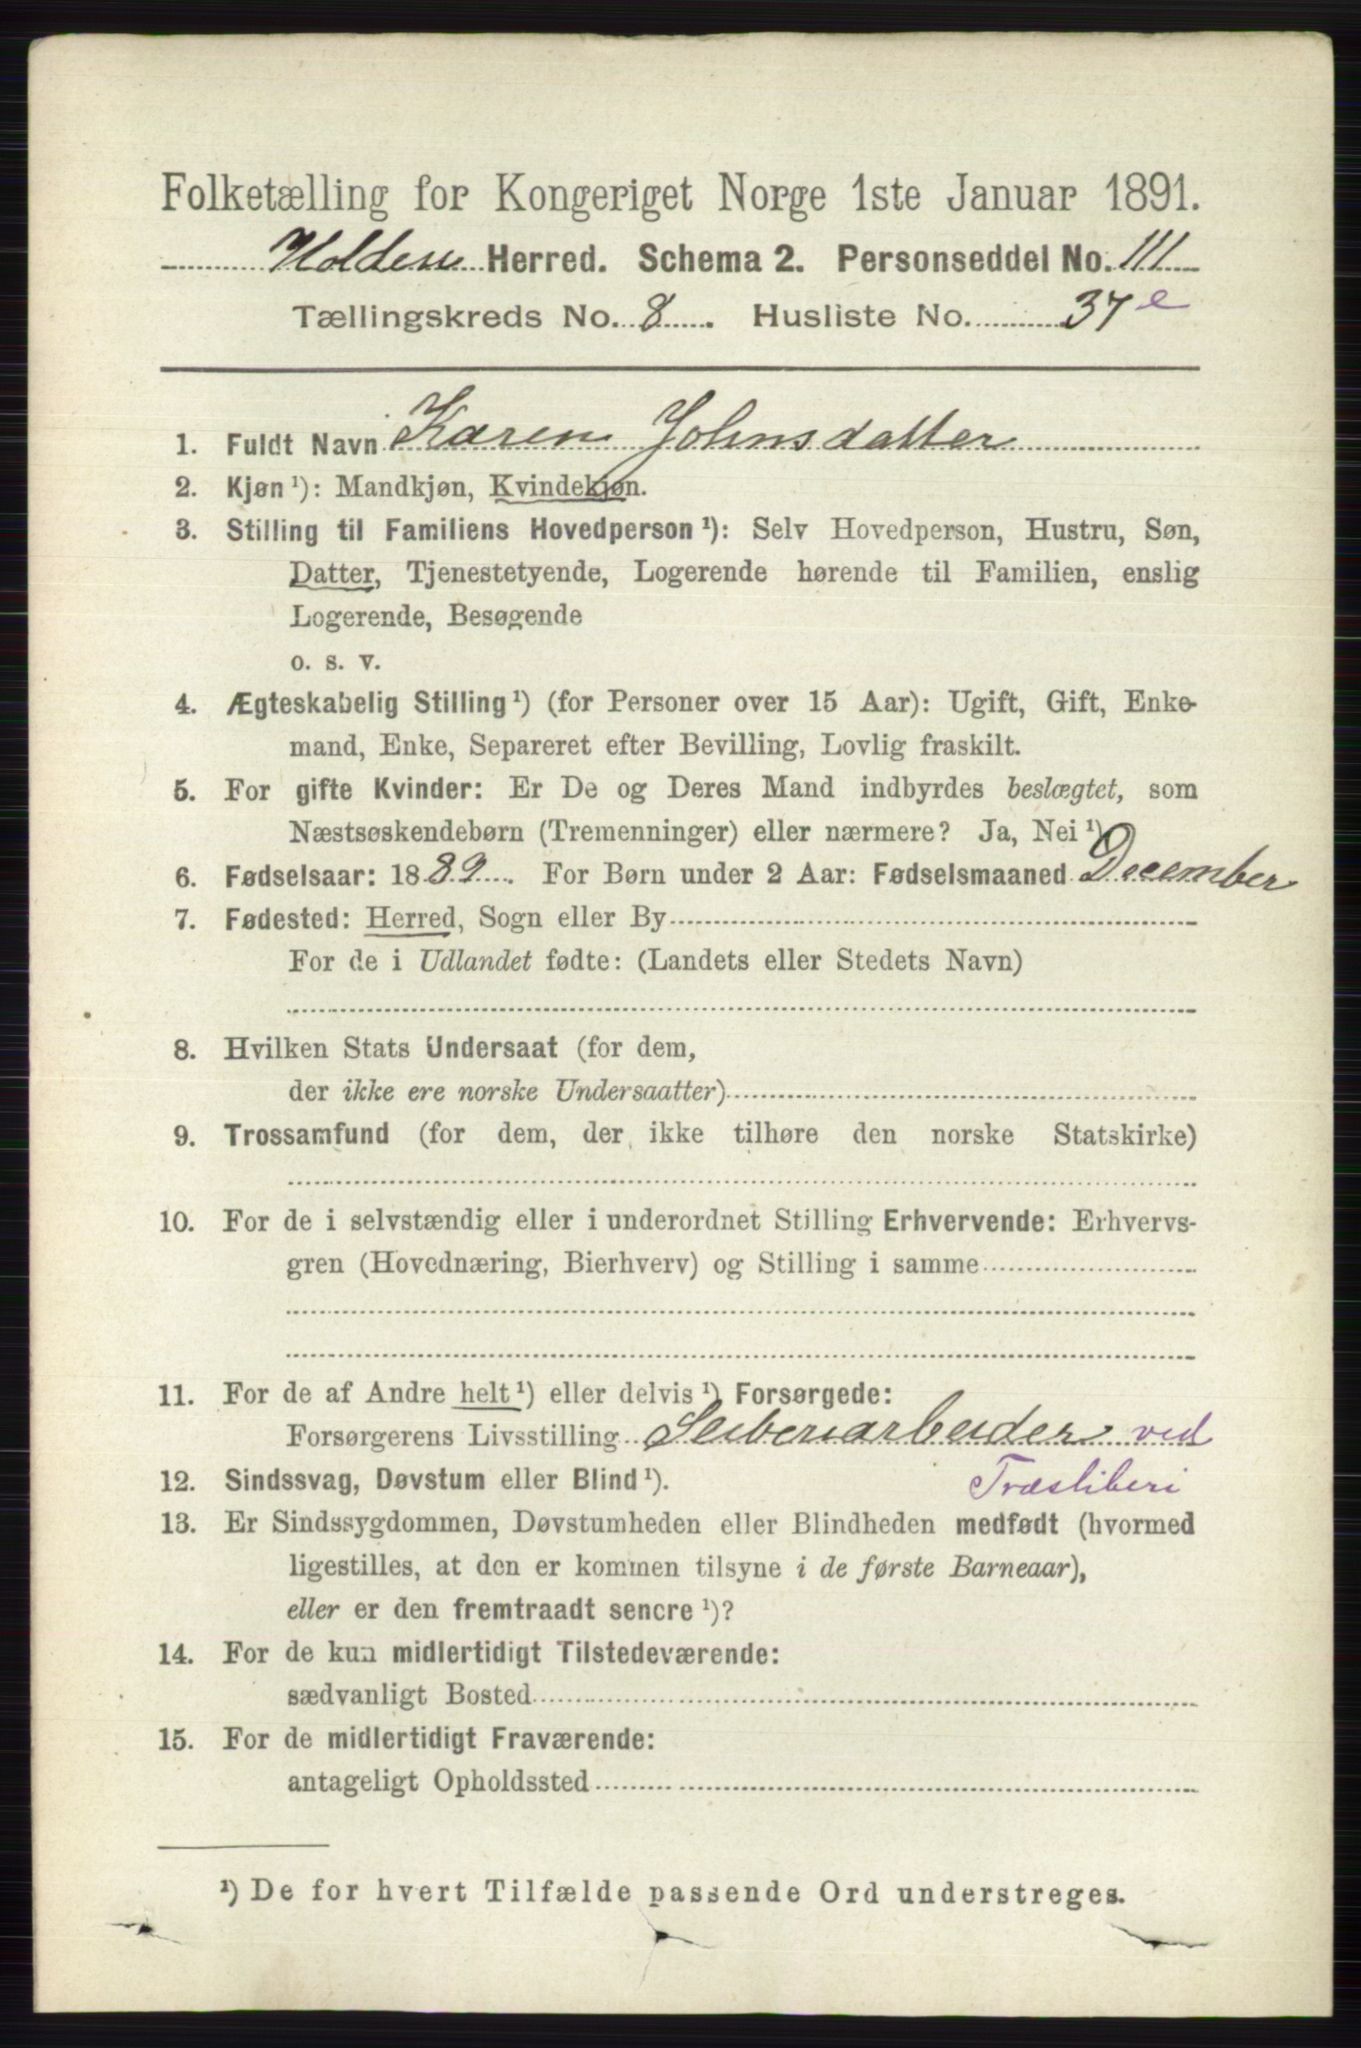 Folketælling for Kongeriget Norge 1ste Januar 1891.
Holden Herred. Schema 2. Personseddel No. 111
Tællingskreds No. 8. Husliste No. 37 e
1. Fuldt Navn Karen Johnsdatter
2. Kjøn ¹): Mandkjøn, Kvindekjøn.
3. Stilling til Familiens Hovedperson ¹): Selv Hovedperson, Hustru, Søn,
Datter, Tjenestetyende, Logerende hørende til Familien, enslig
Logerende, Besøgende
o. s. v.
4. Ægteskabelig Stilling ¹) (for Personer over 15 Aar): Ugift, Gift, Enke-
mand, Enke, Separeret efter Bevilling, Lovlig fraskilt.
5. For gifte Kvinder: Er De og Deres Mand indbyrdes beslægtet, som
Næstsøskendebørn (Tremenninger) eller nærmere? Ja, Nei ¹)
6. Fødselsaar: 1889. For Børn under 2 Aar: Fødselsmaaned December
7. Fødested: Herred, Sogn eller By
For de i Udlandet fødte: (Landets eller Stedets Navn)
8. Hvilken Stats Undersaat (for dem,
der ikke ere norske Undersaatter)
9. Trossamfund (for dem, der ikke tilhøre den norske Statskirke)
10. For de i selvstændig eller i underordnet Stilling Erhvervende: Erhvervs-
gren (Hovednæring, Bierhverv) og Stilling i samme
11. For de af Andre helt ¹) eller delvis ¹) Forsørgede:
Forsørgerens Livsstilling Sliberiarbeider ved
Træsliberi
12. Sindssvag, Døvstum eller Blind ¹).
13. Er Sindssygdommen, Døvstumheden eller Blindheden medfødt (hvormed
ligestilles, at den er kommen tilsyne i de første Barneaar),
eller er den fremtraadt senere ¹)?
14. For de kun midlertidigt Tilstedeværende:
sædvanligt Bosted
15. For de midlertidigt Fraværende:
antageligt Opholdssted
¹) De for hvert Tilfælde passende Ord understreges.